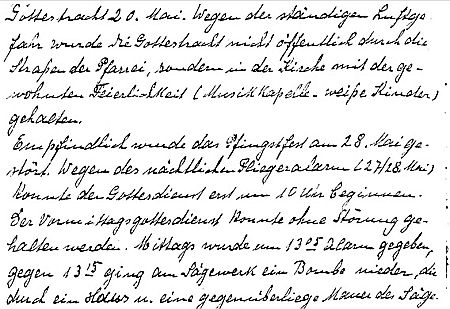 Gottestracht 20. Mai. Wegen der ständigen Luftge-
fahr wurde die Gottestracht nicht öffentlich durch die
Straßen der Pfarrei, sondern in der Kirche mit der ge-
wohnten Feierlichkeit (Musikkapelle - weiße Kinder)
gehalten.
Empfindlich wurde das Pfingstfest am 28. Mai ge-
stört. Wegen des nächtlichen Fliegeralarm (27/28 Mai)
konnte der Gottesdienst erst um 10 Uhr beginnen.
Der Vormittagsgottesdienst konnte ohne Störung ge-
halten werden. Mittags wurde um 13⁰⁵ Alarm gegeben,
gegen 13¹⁵ ging am Sägewerk ein Bombe nieder, die
durch ein Haus u. eine gegenüberliege Mauer des Säge-